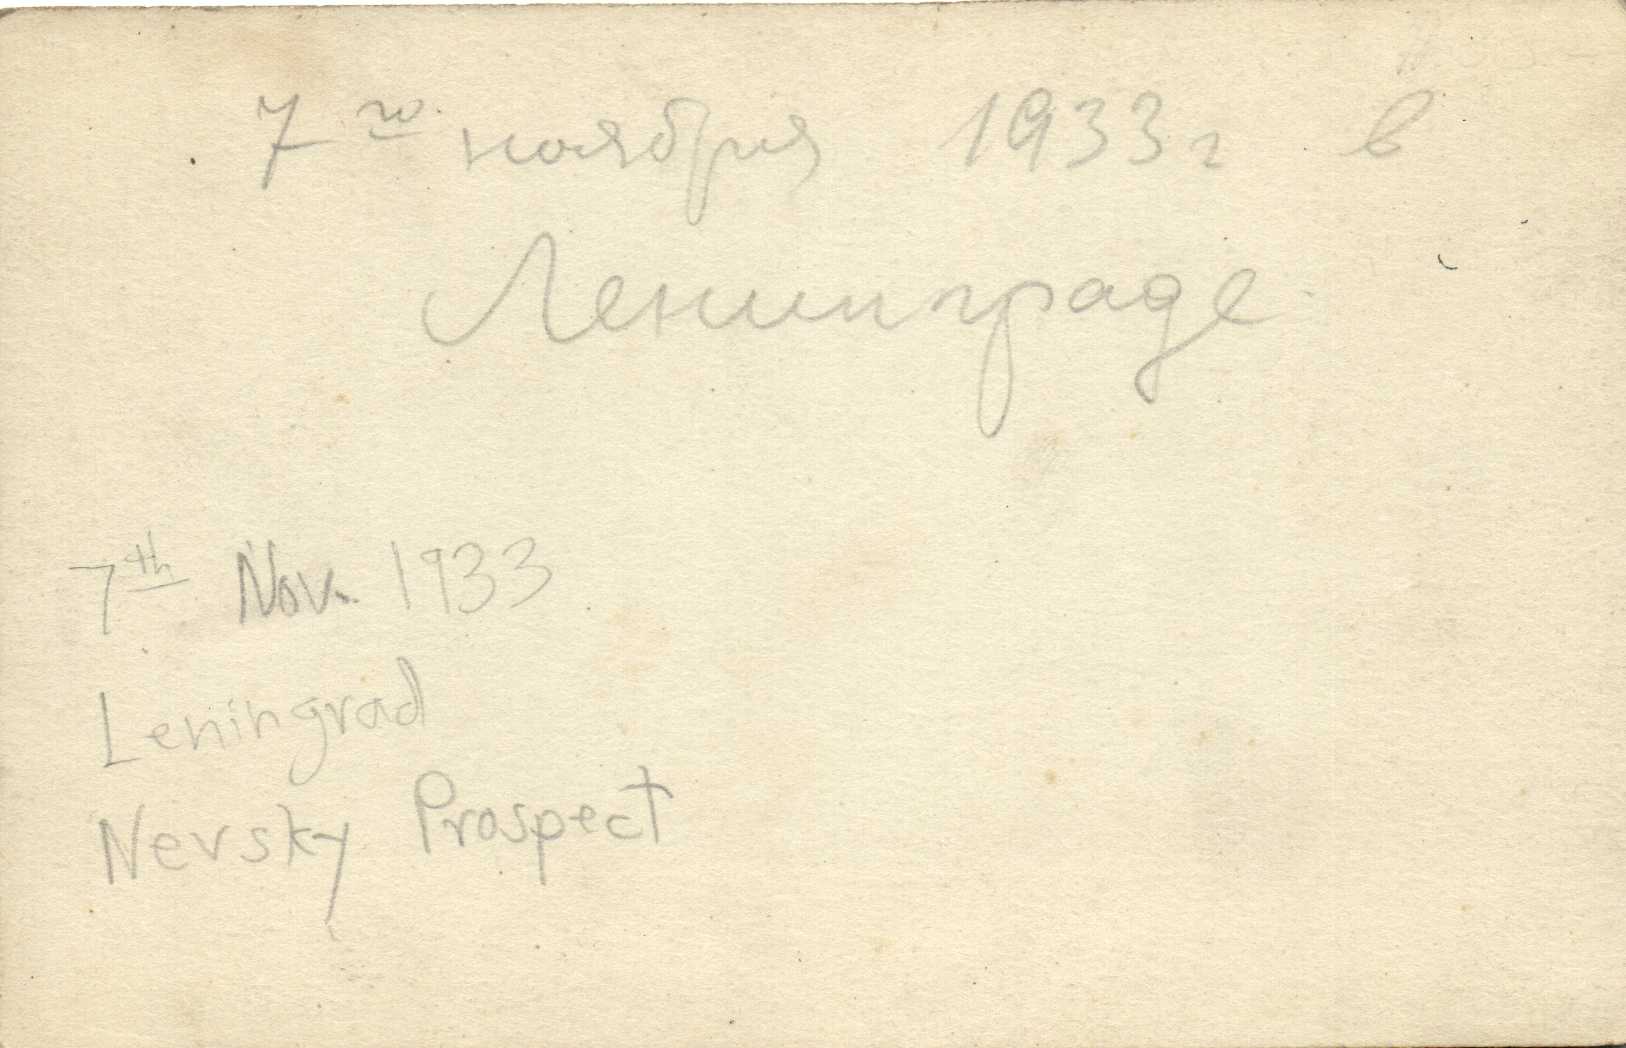 7го ноября 1933 г в
Ленинграде.
7th Nov. 1933
Leningrad
Nevsky Prospect